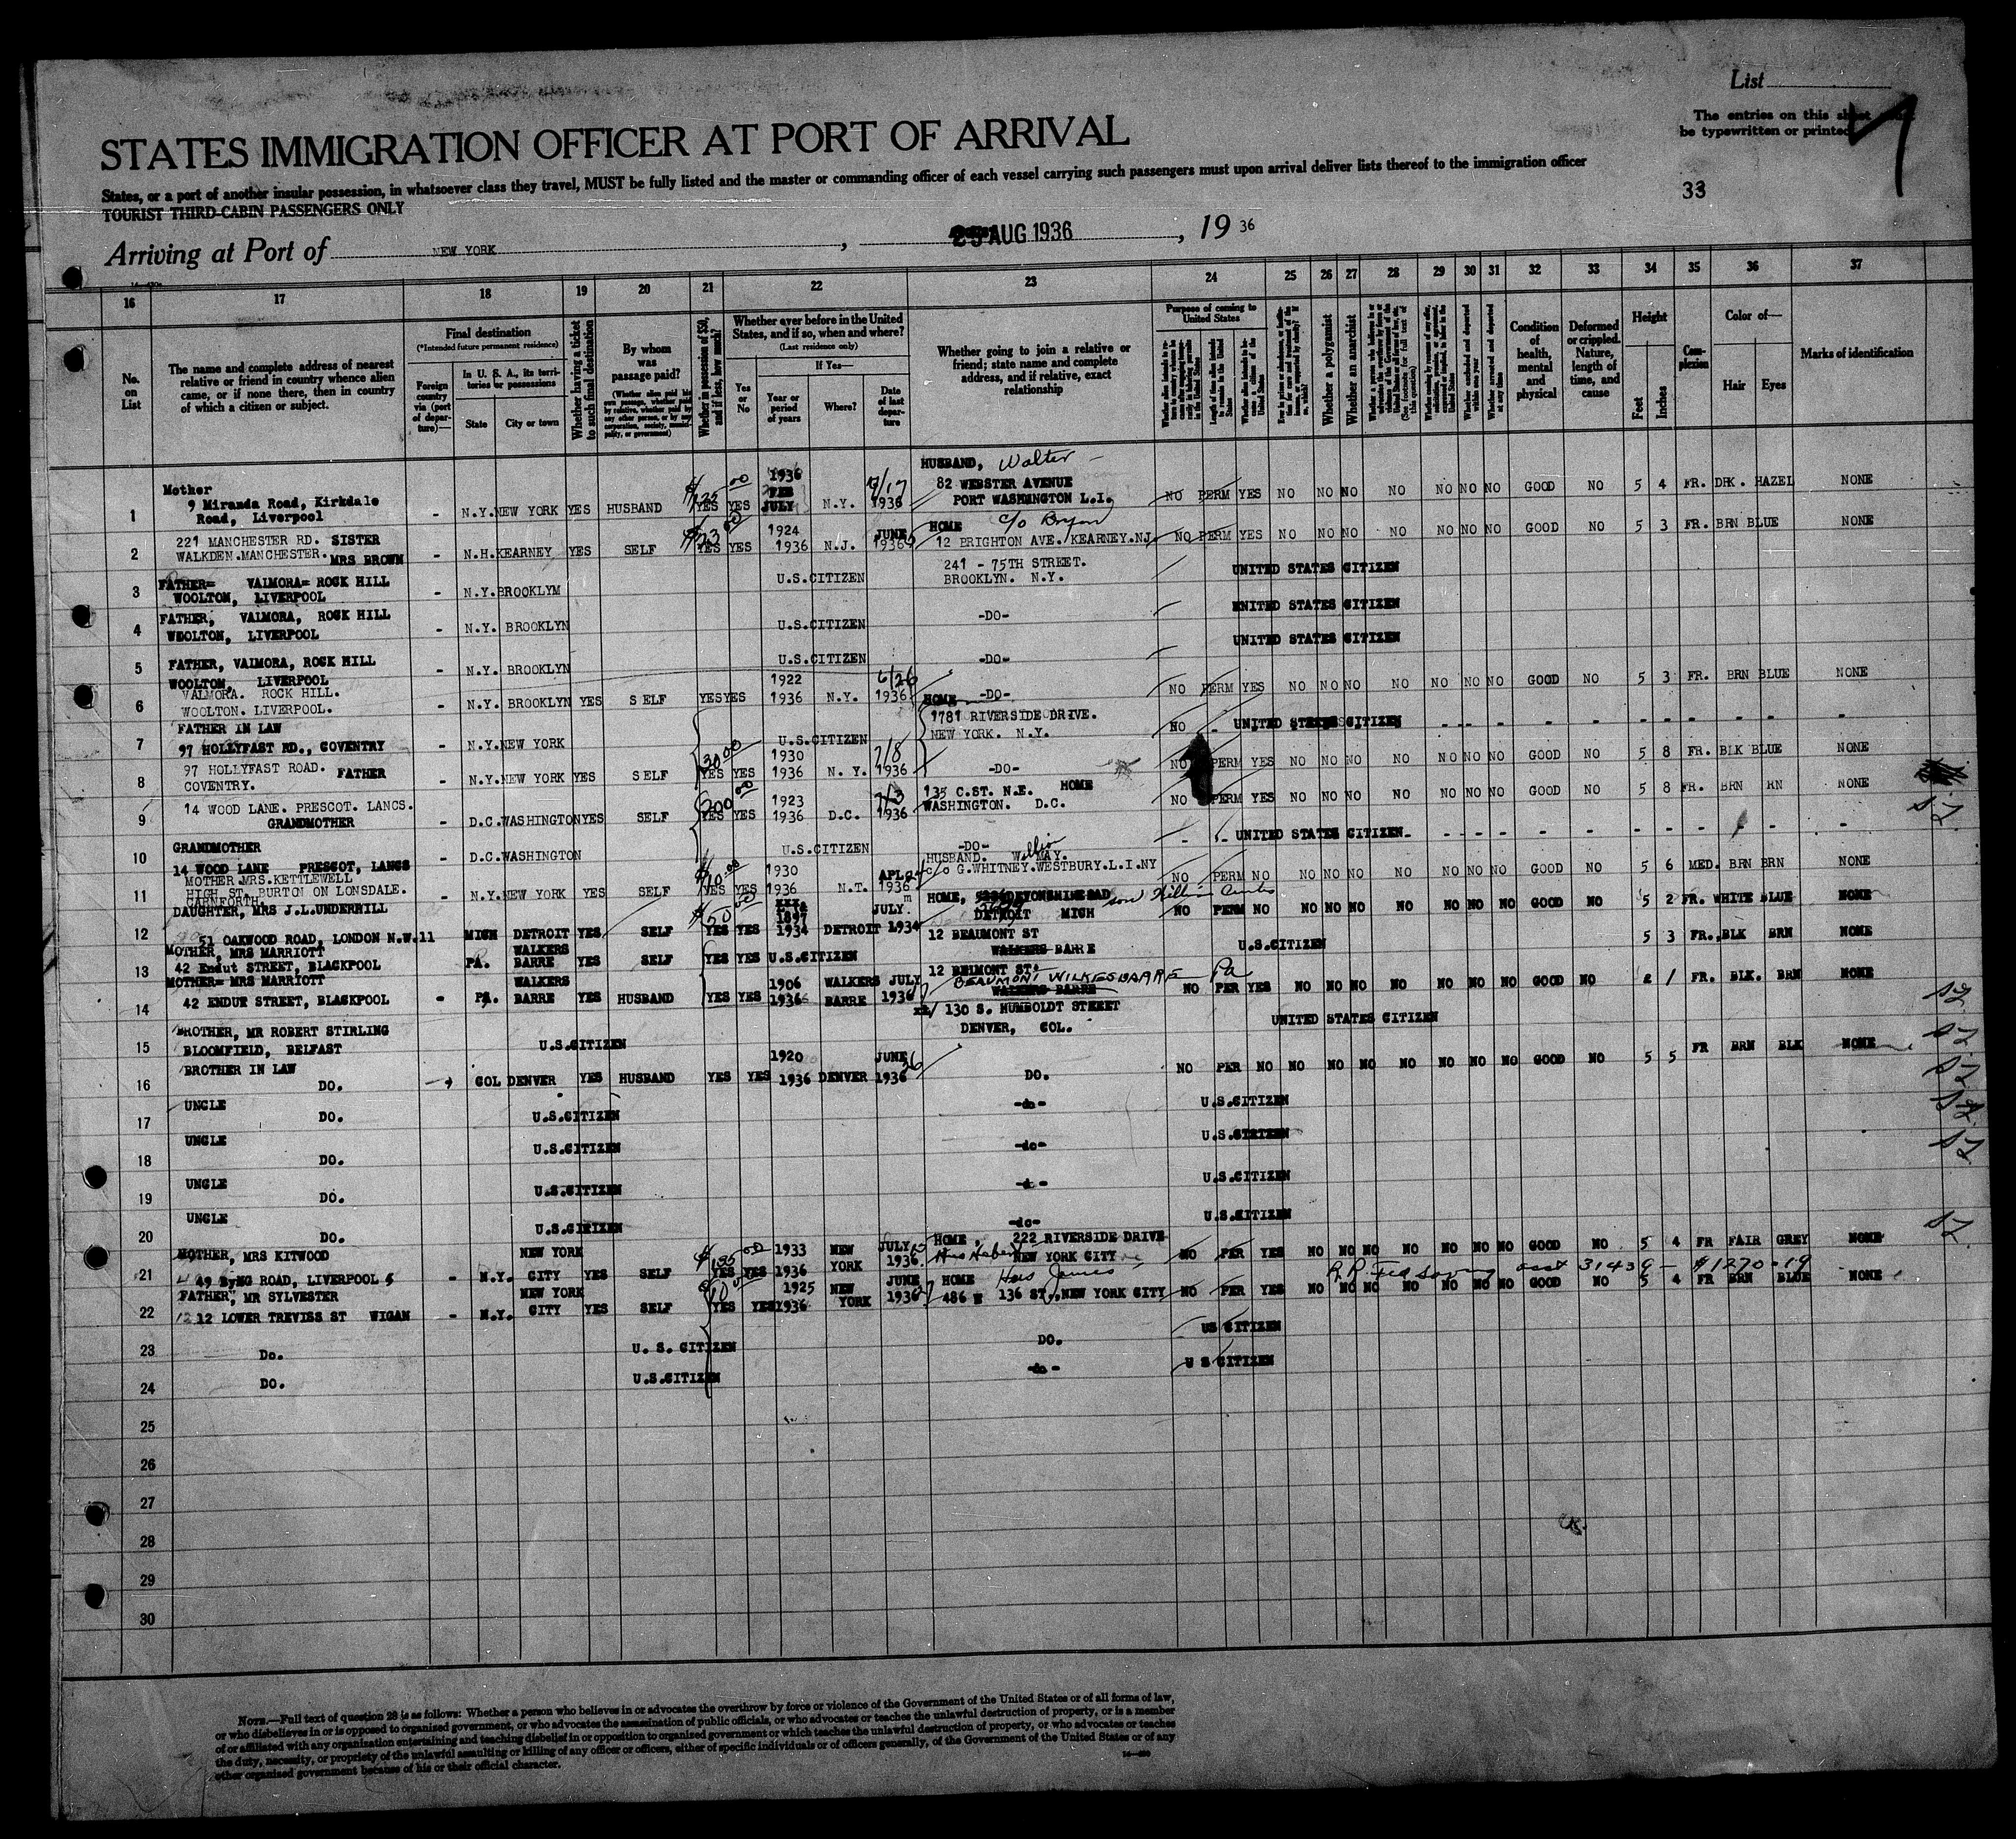 List
The entries on this sheet
be typewritten or printed
STATES IMMIGRATION OFFICER AT PORT OF ARRIVAL
States, or a port of another insular possession, in whatsoever class they travel, MUST be fully listed and the master or commanding officer of each vessel carrying such passengers must upon arrival deliver lists thereof to the immigration officer
TOURIST THIRD-CABIN PASSENGERS ONLY
33
Arriving at Port of NEW YORK, 25 AUG 1936, 19 36
16 17 18 19 20 21 22 23 24 25 26 27 28 29 30 31 32 33 34 35 36 37
No. on List
The name and complete address of nearest relative or friend in country whence alien came, or if none there, then in country of which a citizen or subject.
Final destination
(*Intended future permanent residence)
Foreign country via (port of departure)—
In U. S. A., its territories or possessions
State City or town
Whether having a ticket to such final destination
By whom was passage paid?
(Whether alien paid his own passage, whether paid by relative, whether paid by any other person, or by any corporation, society, municipality, or government)
Whether in possession of $50, and if less, how much?
Whether ever before in the United States, and if so, when and where?
(Last residence only)
Yes or No
If Yes—
Year or period of years
Where?
Date of last departure
Whether going to join a relative or friend; state name and complete address, and if relative, exact relationship
Purpose of coming to United States
Whether a polygamist
Whether an anarchist
Condition of health, mental and physical
Deformed or crippled. Nature, length of time, and cause
Height
Feet Inches
Complexion
Color of—
Hair Eyes
Marks of identification
1 Mother 9 Miranda Road, Kirkdale Road, Liverpool - N.Y. NEW YORK YES HUSBAND $125 00 YES YES 1936 JULY N.Y. 1936 HUSBAND, Walter - 82 WEBSTER AVENUE PORT WASHINGTON L.I. NO PERM YES NO NO NO NO NO NO NO GOOD NO 5 4 FR. DRK. HAZEL NONE
2 221 MANCHESTER RD. SISTER WALKDEN.MANCHESTER. MRS BROWN - N.H. KEARNEY YES SELF $23 00 YES YES 1924 1936 N.J. JUNE 1936 HOME c/o Bryon 12 BRIGHTON AVE. KEARNEY.NJ. NO PERM YES NO NO NO NO NO NO NO GOOD NO 5 3 FR. BRN BLUE NONE
3 FATHER= VALMORA= ROCK HILL WOOLTON, LIVERPOOL - N.Y. BROOKLYM U.S.CITIZEN 241 - 75TH STREET. BROOKLYN. N.Y. UNITED STATES CITIZEN
4 FATHER, VALMORA, ROCK HILL WOOLTON, LIVERPOOL - N.Y. BROOKLYN U.S.CITIZEN -DO- UNITED STATES CITIZEN
5 FATHER, VALMORA, ROCK HILL WOOLTON, LIVERPOOL - N.Y. BROOKLYN U.S.CITIZEN -DO- UNITED STATES CITIZEN
6 VALMORA. ROCK HILL. WOOLTON. LIVERPOOL. - N.Y. BROOKLYN YES SELF YES YES 1922 1936 N.Y. 6/26 1936 HOME -DO- NO PERM YES NO NO NO NO NO NO NO GOOD NO 5 3 FR. BRN BLUE NONE
7 FATHER IN LAW 97 HOLLYFAST RD., COVENTRY - N.Y. NEW YORK U.S.CITIZEN 1781 RIVERSIDE DRIVE. NEW YORK. N.Y. NO - UNITED STATES CITIZEN - - - - - - - - - - -
8 97 HOLLYFAST ROAD. FATHER COVENTRY. - N.Y. NEW YORK YES SELF 30 00 YES YES 1930 1936 N. Y. 7/8 1936 -DO- NO PERM YES NO NO NO NO NO NO NO GOOD NO 5 8 FR. BLK BLUE NONE
9 14 WOOD LANE. PRESCOT. LANCS. GRANDMOTHER - D.C. WASHINGTON YES SELF 200 00 YES YES 1923 1936 D.C. 7/3 1936 135 C.ST. N.E. HOME WASHINGTON. D.C. NO PERM YES NO NO NO NO NO NO NO GOOD NO 5 8 FR. BRN RN NONE
10 GRANDMOTHER 14 WOOD LANE PRESCOT, LANCS - D.C. WASHINGTON U.S.CITIZEN -DO- - - UNITED STATES CITIZEN - - - - - - - - - - - -
11 MOTHER.MRS.KETTLEWELL HIGH ST. BURTON ON LONSDALE. CARNFORTH. - N.Y. NEW YORK YES SELF $10 00 YES YES 1930 1936 N.T. APL 1936 HUSBAND. William MAY. c/o G.WHITNEY.WESTBURY.L.I.NY NO PERM NO NO NO NO NO NO NO NO GOOD NO 5 6 MED. BRN BRN NONE
12 DAUGHTER, MRS J.L.UNDERHILL 51 OAKWOOD ROAD, LONDON N.W.11 MICH DETROIT YES SELF $50 00 YES YES 1897 1934 DETROIT JULY. 1934 HOME, DEVONSHIRE son William DETROIT MICH NO PERM NO NO NO NO NO NO NO NO GOOD NO 5 2 FR. WHITE BLUE NONE
13 MOTHER, MRS MARRIOTT 42 Endut STREET, BLACKPOOL PA. WALKERS BARRE YES SELF YES YES U.S.CITIZEN 12 BEAUMONT ST WALKERS BARRE U.S.CITIZEN 5 3 FR., BLK BRN NONE
14 MOTHER= MRS MARRIOTT 42 ENDUT STREET, BLACKPOOL - PA. WALKERS BARRE YES HUSBAND YES YES 1906 1936 WALKERS BARRE JULY 1936 12 BEIMONT ST. BEAUMONT WILKESBARRE Pa WALKERS BARRE NO PER YES NO NO NO NO NO NO NO GOOD NO FR. BLK. BRN NONE
15 BROTHER, MR ROBERT STIRLING BLOOMFIELD, BELFAST U.S.CITIZEN 130 S. HUMBOLDT STREET DENVER, COL. UNITED STATES CITIZEN
16 BROTHER IN LAW DO. COL DENVER YES HUSBAND YES YES 1920 1936 DENVER JUNE 1936 DO. NO PER NO NO NO NO NO NO NO NO GOOD NO 5 5 FR BRN BLK NONE
17 UNCLE DO. U.S.CITIZEN -do- U.S.CITIZEN
18 UNCLE DO. U.S.CITIZEN -do- U.S.CITIZEN
19 UNCLE DO. U.S.CITIZEN -d- U.S.CITIZEN
20 UNCLE DO. U.S.CITIZEN -do- U.S.CITIZEN
21 MOTHER, MRS KITWOOD 49 ByNG ROAD, LIVERPOOL 5 - N.Y. NEW YORK CITY YES SELF $135 00 YES YES 1933 1936 NEW YORK JULY 1936 HOME, 222 RIVERSIDE DRIVE NEW YORK CITY NO PER YES NO NO NO NO NO NO NO GOOD NO 5 4 FR FAIR GREY NONE
Fed Saving acct 31439 - $1270.19
22 FATHER, MR SYLVESTER 12 LOWER TREVISS ST WIGAN - N.Y. NEW YORK CITY YES SELF YES YES 1925 1936 NEW YORK JUNE 1936 HOME Hus James 486 E 136 ST., NEW YORK CITY NO PER YES NO NO NO NO NO NO NO GOOD NO 5 4 FR BRN BLUE NONE
23 Do. U. S. CITIZEN DO. US CITIZEN
24 DO. U.S.CITIZEN -do- U S CITIZEN
25
26
27
28
29
30
NOTE.—Full text of question 28 is as follows: Whether a person who believes in or advocates the overthrow by force or violence of the Government of the United States or of all forms of law,
or who disbelieves in or is opposed to organized government, or who advocates the assassination of public officials, or who advocates or teaches the unlawful destruction of property, or is a member
of or affiliated with any organization entertaining and teaching disbelief in or opposition to organized government or which teaches the unlawful destruction of property, or who advocates or teaches
the duty, necessity, or propriety of the unlawful assaulting or killing of any officer or officers, either of specific individuals or of officers generally, of the Government of the United States or of any
other organized government because of his or their official character.